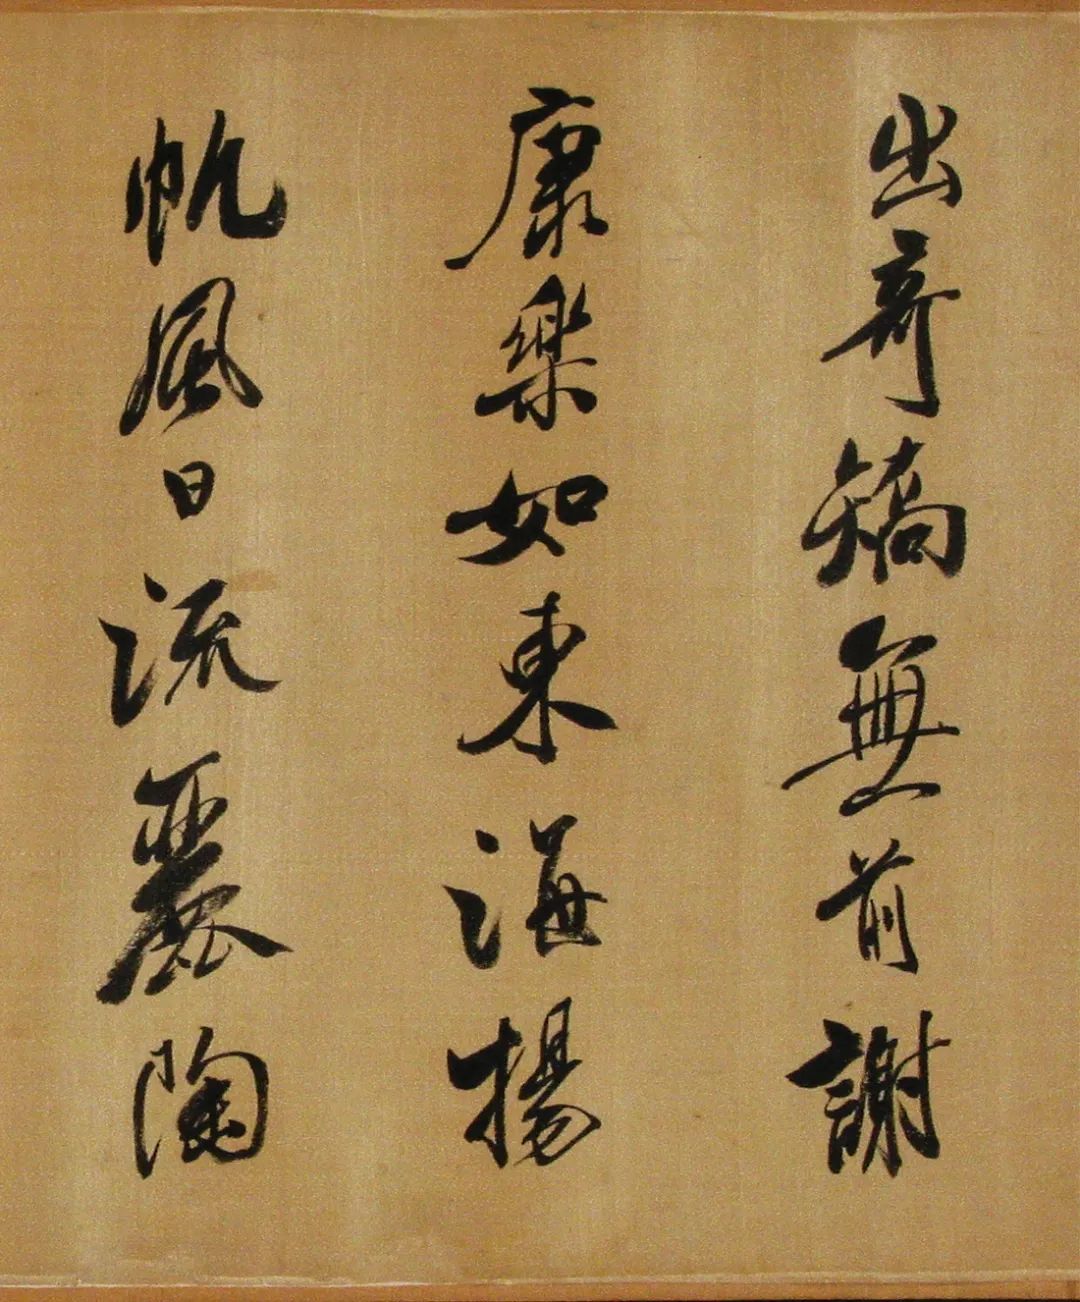 出奇矯無前謝
康樂如東海揚
帆風日流麗陶